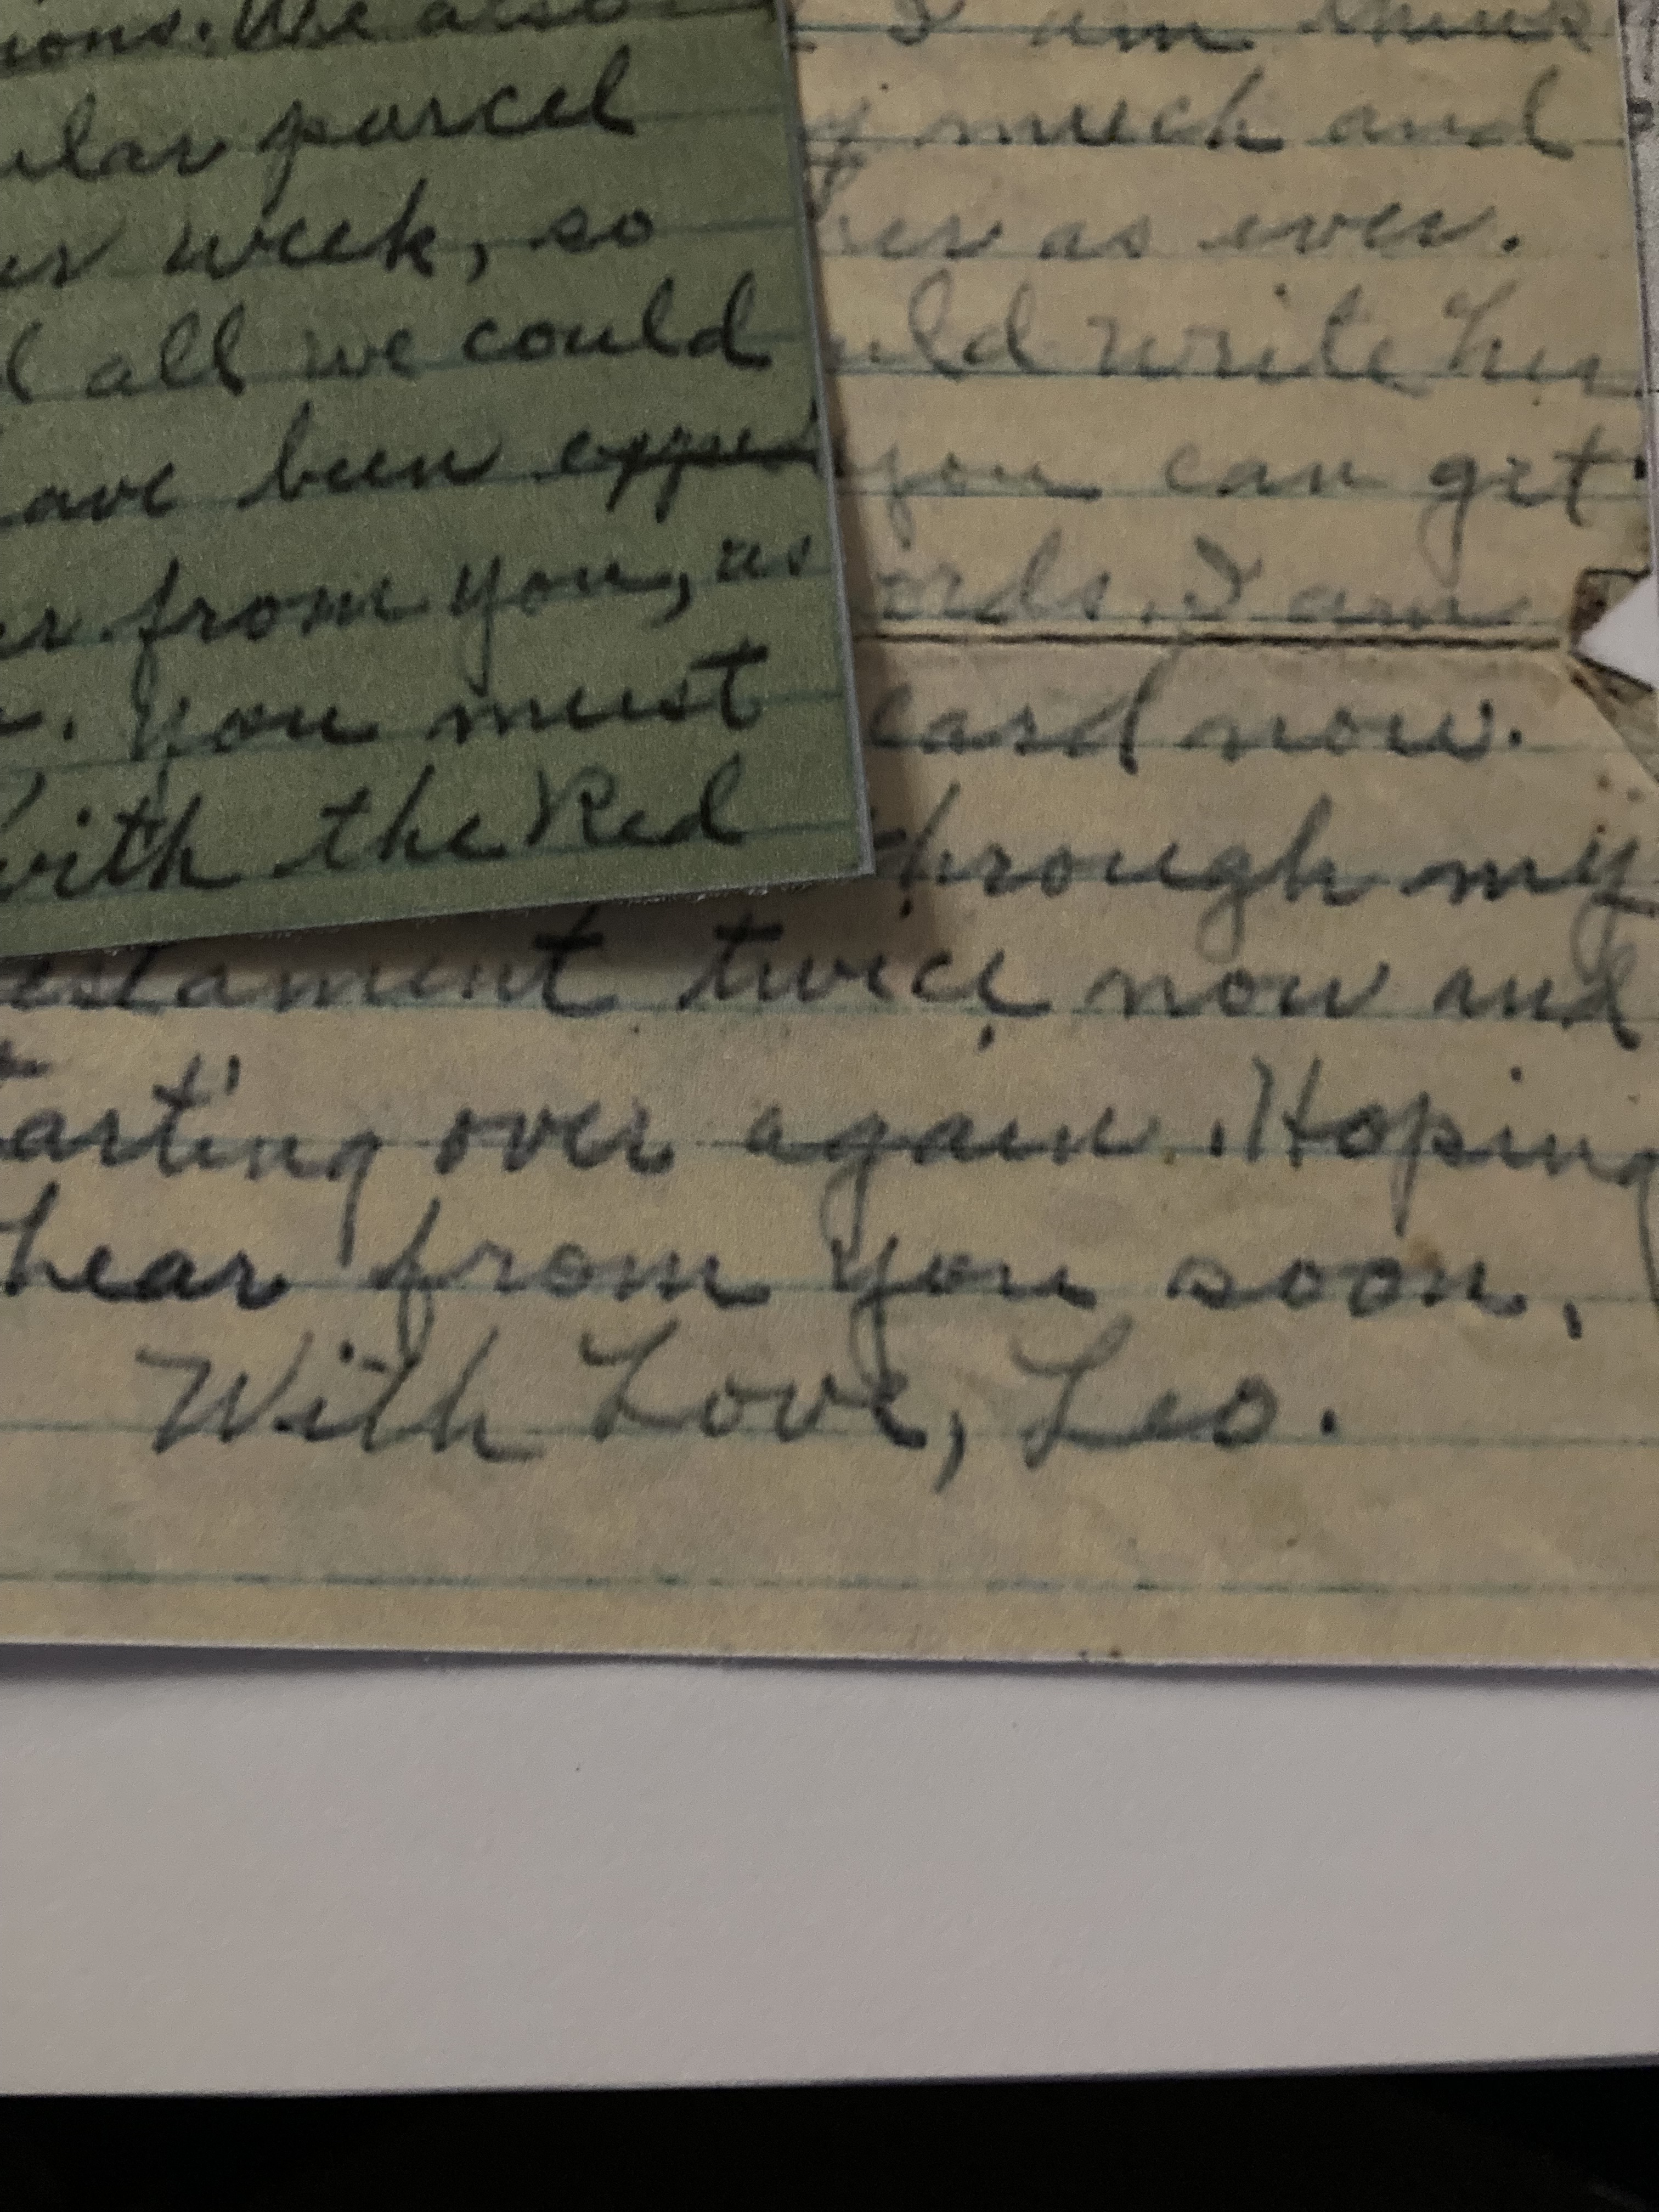 ions. We also
ular parcel
er week, so
d all we could
ave been
er from you, as
you must
with the Red
I am think
y much and
her as ever.
uld write her
you can get
ords. I am
eard now.
through my
estament twice now and
tarting over again. Hoping
hear from you soon,
With Love, Leo.